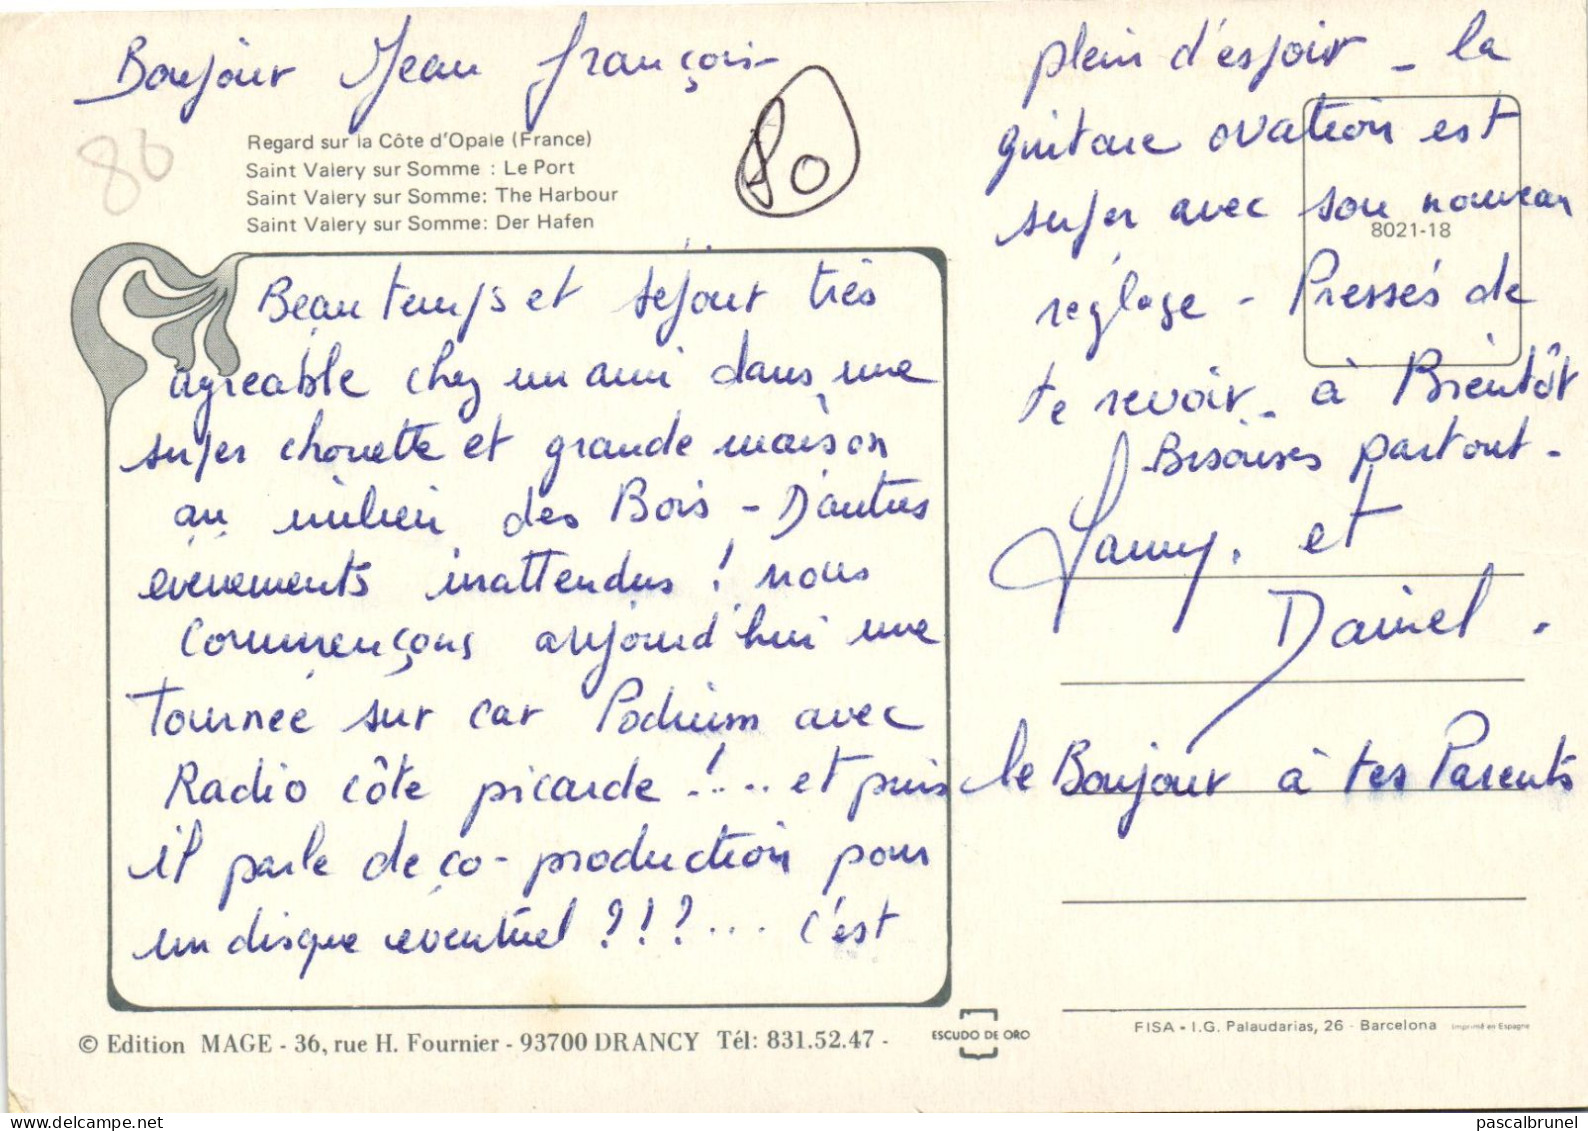 Bonjour Jean françois -
80
80
Regard sur la Côte d'Opale (France)
Saint Valery sur Somme : Le Port
Saint Valery sur Somme: The Harbour
Saint Valery sur Somme: Der Hafen
Beau temps et séjour très
agréable chez un ami dans une
super chouette et grande maison
au milieu des Bois - D'autres
évènements inattendus ! nous
commençons aujourd'hui une
Tournée sur car Podium avec
Radio côte picarde !.... et puis
il parle de co-production pour
un disque éventuel ?!?... c'est
plein d'espoir - la
guitare ovation est
super avec son nouveau
8021-18
réglage - Pressés de
te revoir - à Bientôt
Bisouses partout -
Fanny. et
Daniel.
le Bonjour à tes Parents
© Edition MAGE - 36, rue H. Fournier - 93700 DRANCY Tél: 831.52.47 -
ESCUDO DE ORO
FISA - I.G. Palaudarias, 26 - Barcelona Imprimé en Espagne
pascalbrunel